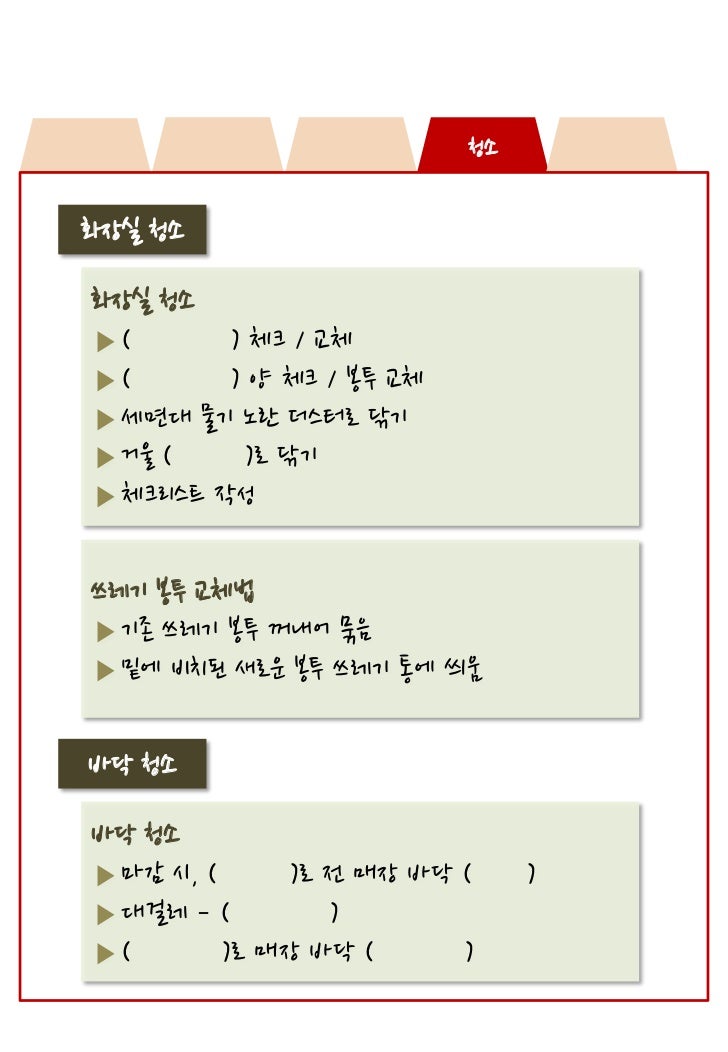 청소
화장실 청소
화장실 청소
▶ (          ) 체크 / 교체
▶ (          ) 양 체크 / 봉투 교체
▶ 세면대 물기 노란 더스터로 닦기
▶ 거울 (       )로 닦기
▶ 체크리스트 작성
쓰레기 봉투 교체법
▶ 기존 쓰레기 봉투 꺼내어 묶음
▶ 밑에 비치된 새로운 봉투 쓰레기 통에 씌움
바닥 청소
바닥 청소
▶ 마감 시, (       )로 전 매장 바닥 (     )
▶ 대걸레 - (          )
▶ (         )로 매장 바닥 (         )